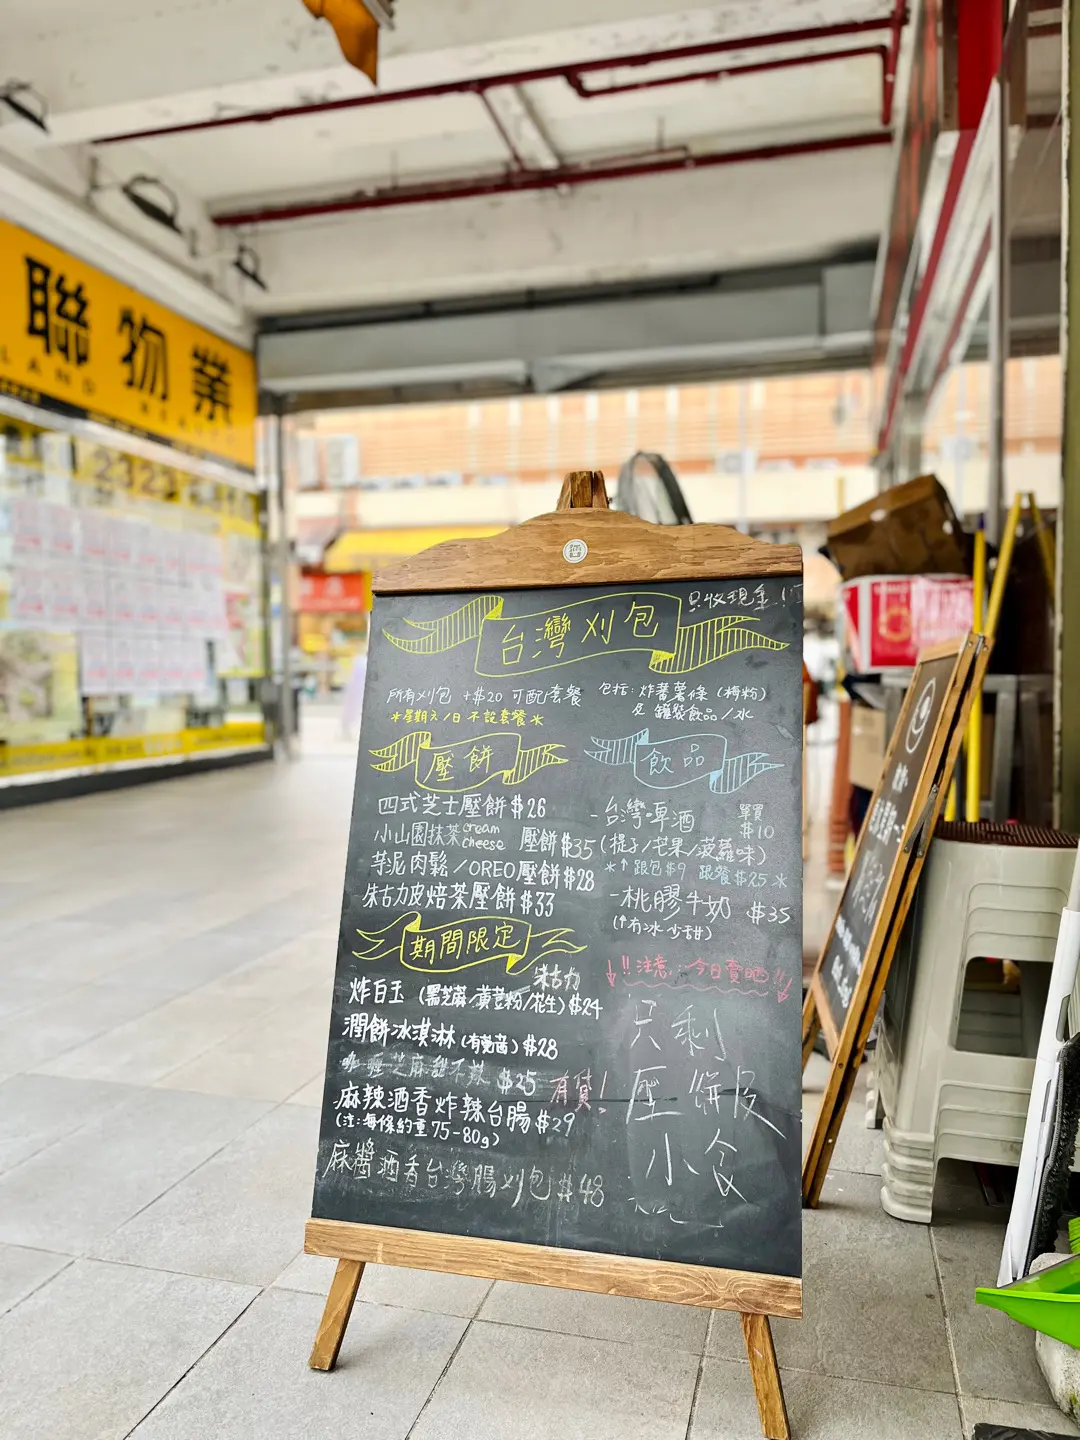 聯物業
LAND REALTY
2323
只收現金!
台灣刈包
所有刈包 +$20 可配套餐
*星期六/日 不設套餐*
包括: 炸蕃薯條 (梅粉)
及 罐裝飲品/水
壓餅
四式芝士壓餅 $26
小山園抹茶 cream cheese 壓餅 $35
芋泥肉鬆/OREO壓餅 $28
朱古力皮焙茶壓餅 $33
飲品
-台灣啤酒 單買 $10
(提子/芒果/菠蘿味)
*↑跟包$9 跟餐$25*
-桃膠牛奶 $35
(↑冇冰 少甜)
期間限定
朱古力
炸白玉 (黑芝麻/黃荳粉/花生) $24
潤餅冰淇淋 (有芫茜) $28
芝麻甜不辣 $25 有貨!
麻辣酒香炸辣台腸 $29
(注:每條約重75-80g)
麻醬酒香台灣腸刈包 $48
↓!!注意:今日賣晒!!↓
只剩
壓餅皮
小食